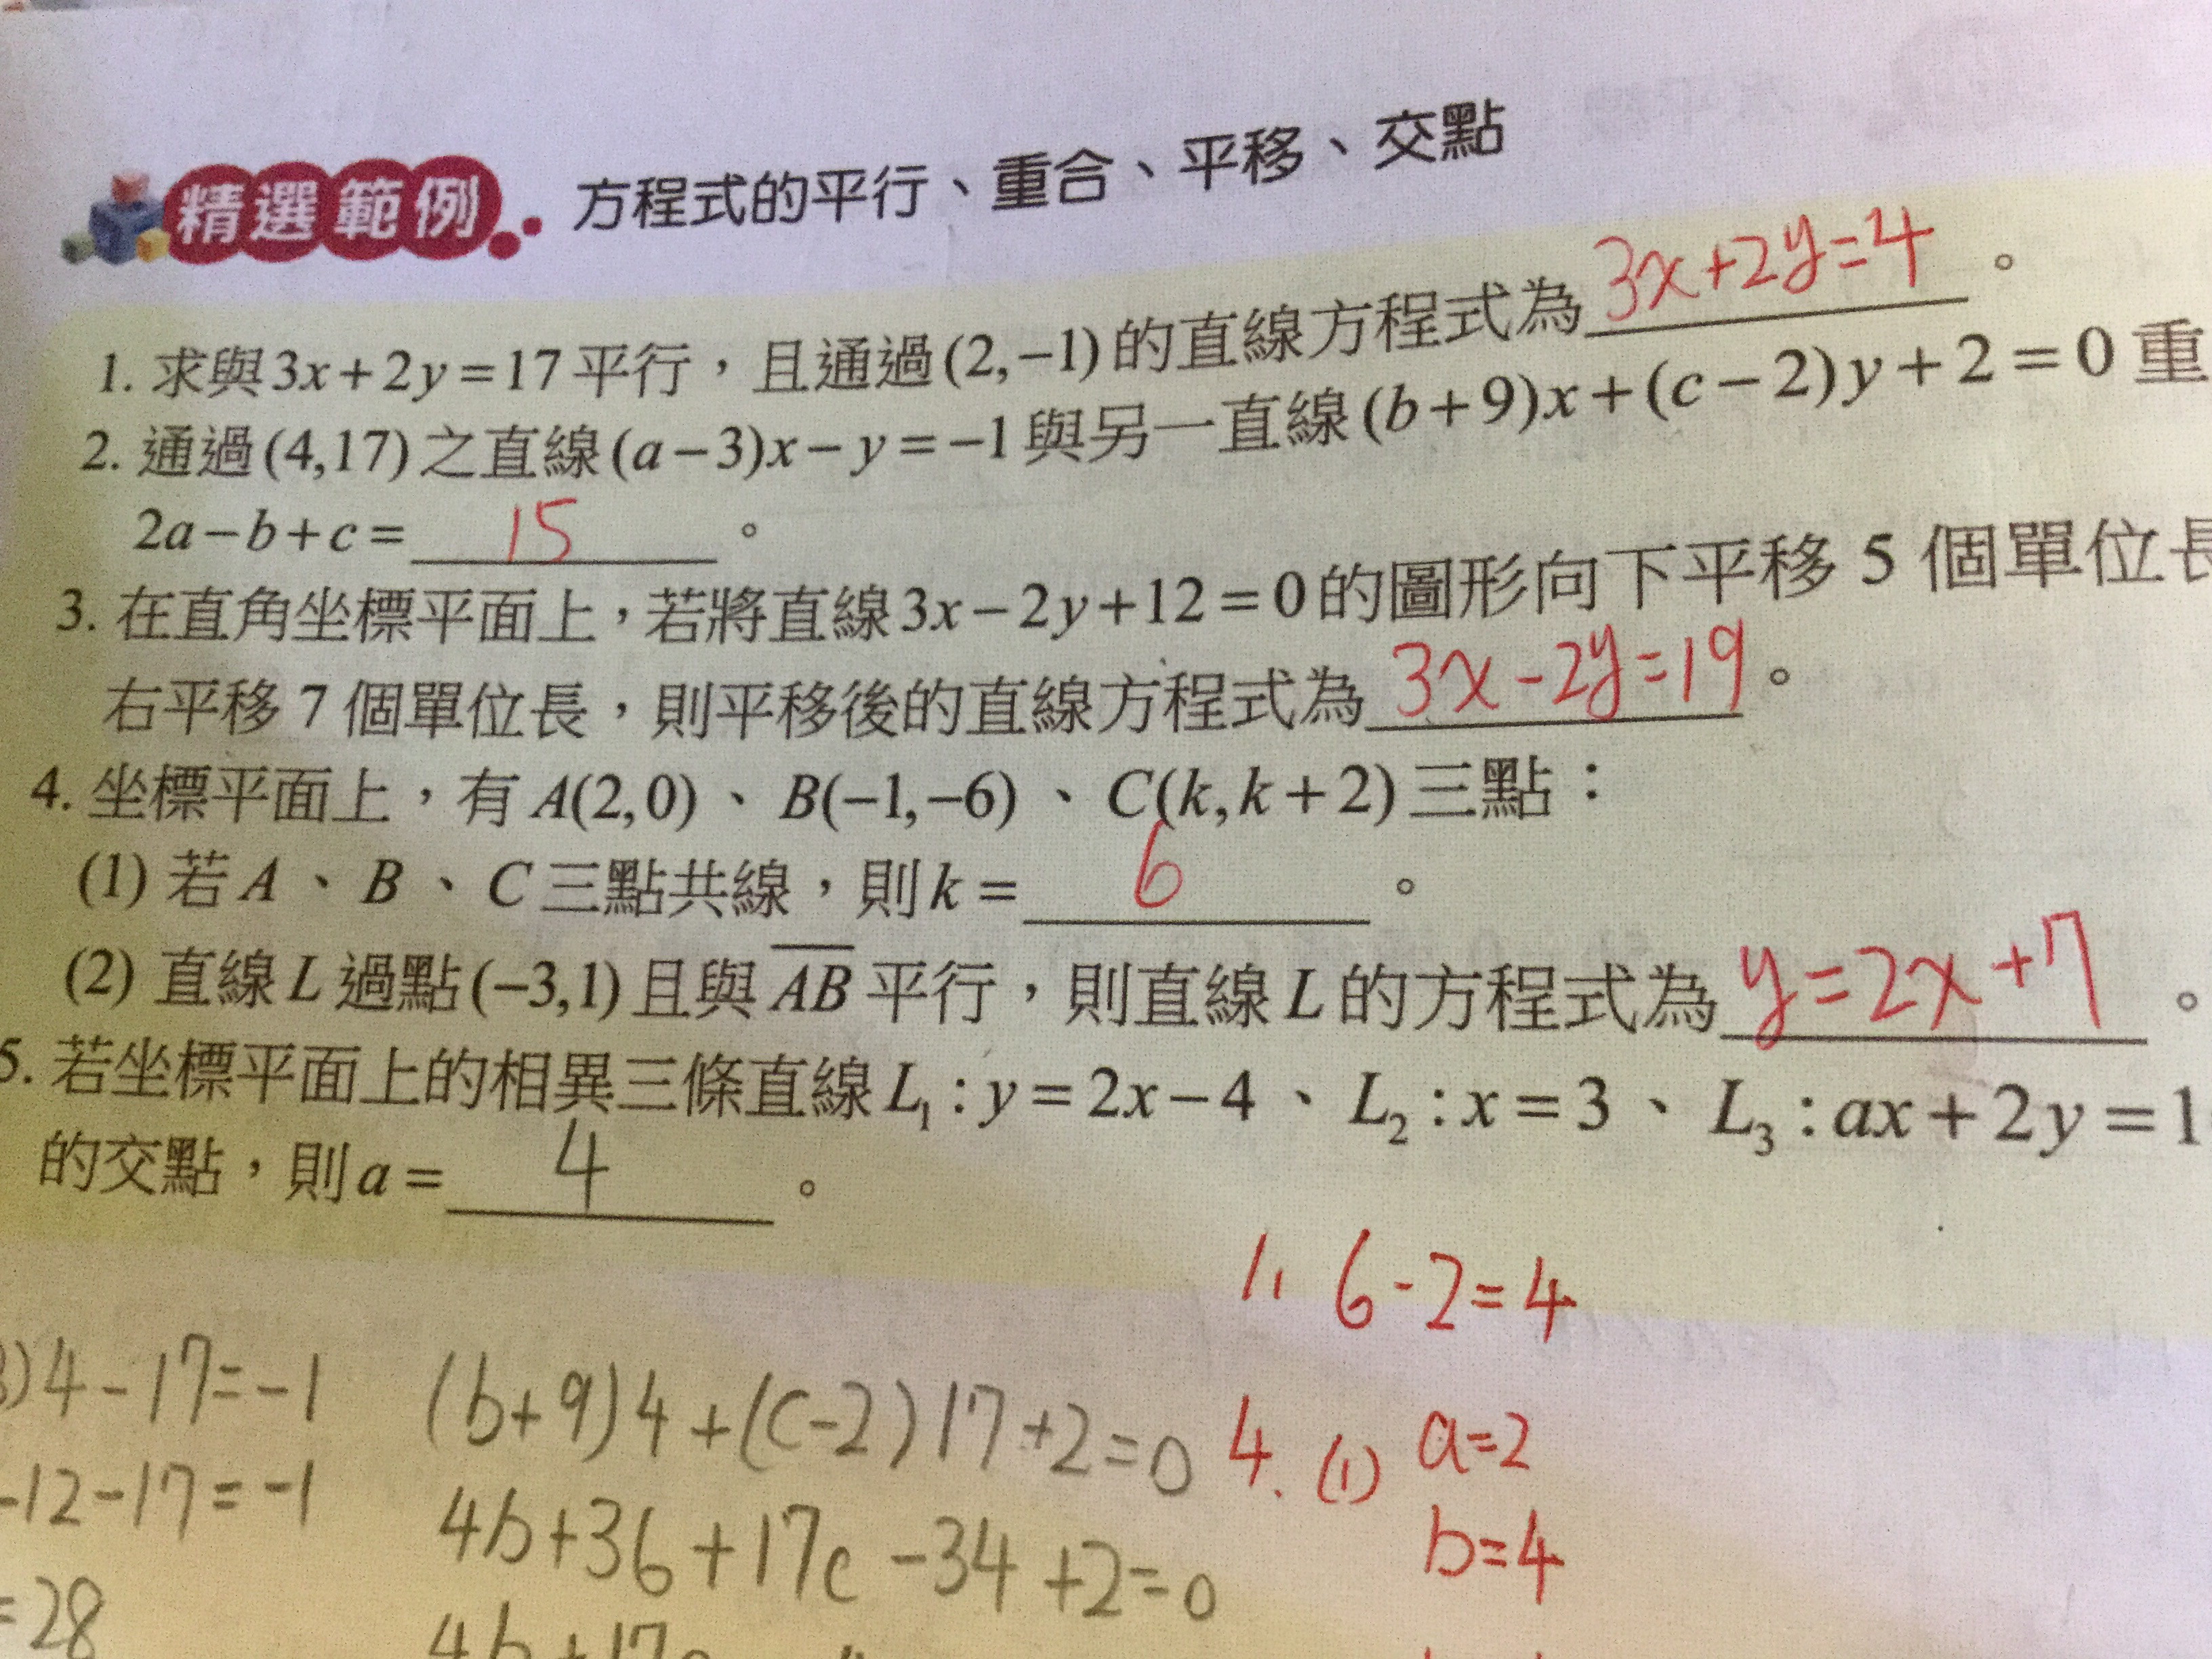 精選範例 方程式的平行、重合、平移、交點
1. 求與3x+2y=17平行，且通過(2,-1)的直線方程式為 3x+2y=4 。
2. 通過(4,17)之直線(a-3)x-y=-1與另一直線(b+9)x+(c-2)y+2=0重
2a-b+c= 15 。
3. 在直角坐標平面上，若將直線3x-2y+12=0的圖形向下平移 5 個單位長
右平移 7 個單位長，則平移後的直線方程式為 3x-2y=19 。
4. 坐標平面上，有 A(2,0)、B(-1,-6)、C(k,k+2)三點：
(1) 若 A、B、C 三點共線，則k= 6 。
(2) 直線 L 過點(-3,1)且與 \overline{AB} 平行，則直線 L 的方程式為 y=2x+7 。
5. 若坐標平面上的相異三條直線 L₁:y=2x-4、L₂:x=3、L₃:ax+2y=1
的交點，則a= 4 。
1. 6-2=4
)4-17=-1 (b+9)4+(c-2)17+2=0 4.(1) a=2
-12-17=-1 4b+36+17c-34+2=0 b=4
=28